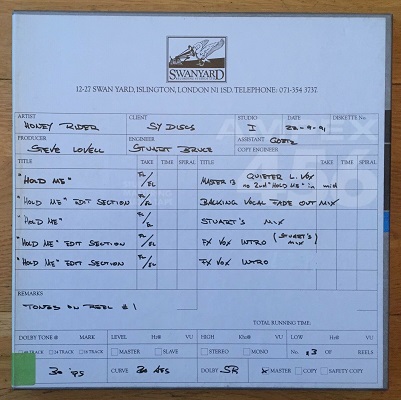 SWANYARD
12-27 SWAN YARD, ISLINGTON, LONDON N1 1SD. TELEPHONE: 071-354 3737.
ARTIST CLIENT STUDIO DATE DISKETTE No.
HONEY RIDER SY DISCS I 22-9-91
PRODUCER ENGINEER ASSISTANT GOETZ
STEVE LOVELL STUART BRUCE COPY ENGINEER
TITLE TAKE TIME SPIRAL TITLE TAKE TIME SPIRAL
"HOLD ME" FL/EL MASTER 13 QUIETER L. VOX
no 2nd "HOLD ME" in mid
"HOLD ME" EDIT SECTION FL/EL BACKING VOCAL FADE OUT MIX
"HOLD ME" FL/EL STUART'S MIX
"HOLD ME" EDIT SECTION FL/EL FX VOX INTRO (STUART'S MIX)
"HOLD ME" EDIT SECTION FL/EL FX VOX INTRO
REMARKS
TONES ON REEL #1
TOTAL RUNNING TIME:
DOLBY TONE @ MARK LEVEL Hz@ VU HIGH Khz@ VU LOW Hz@ VU
TRACK 24 TRACK 16 TRACK MASTER SLAVE STEREO MONO No. 13 OF REELS
30 IPS CURVE 30 AES DOLBY SR MASTER COPY SAFETY COPY
AMPEX